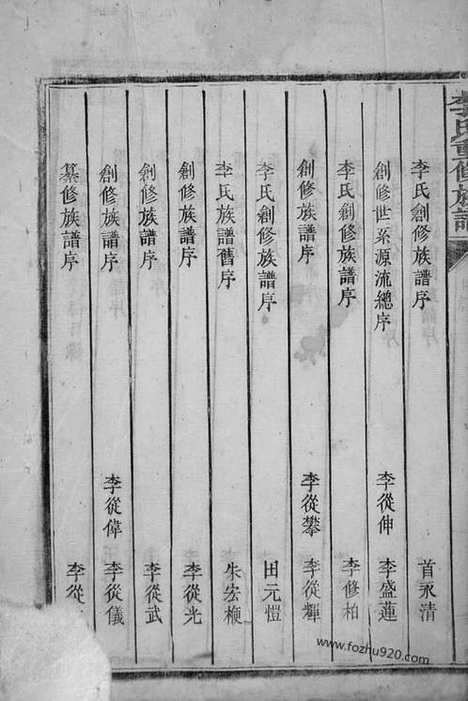 李氏重修族譜
李氏創修族譜序 首永清
創修世系源流總序 李從伸 李盛蓮
李氏創修族譜序 李修柏
創修族譜序 李從攀 李從輝
李氏創修族譜序 田元愷
李氏族譜舊序 朱宏楩
創修族譜序 李從光
創修族譜序 李從武
創修族譜序 李從偉 李從儀
纂修族譜序 李從
www.fozhu920.com